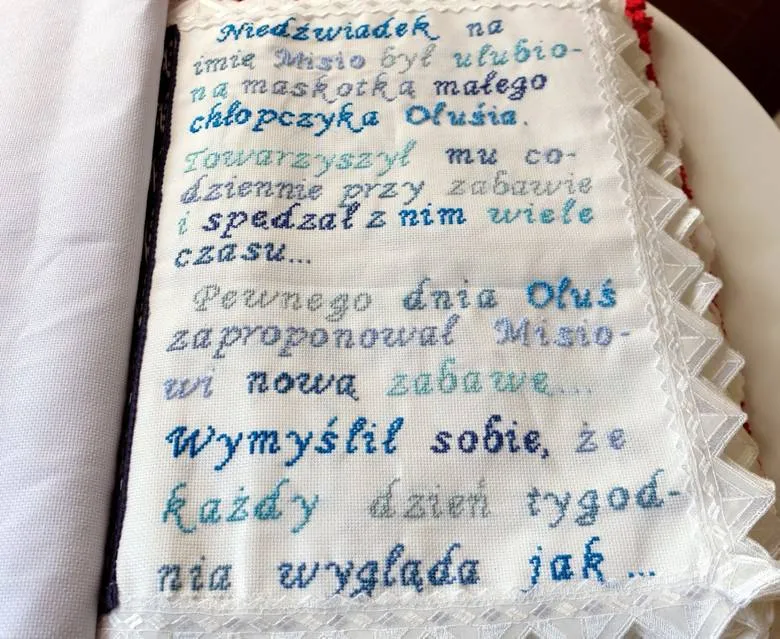 Niedźwiadek na
imię Misio był ulubio-
ną maskotką małego
chłopczyka Olusia.
Towarzyszył mu co-
dziennie przy zabawie
i spędzał z nim wiele
czasu...
Pewnego dnia Oluś
zaproponował Misio-
wi nową zabawę...
Wymyślił sobie, że
każdy dzień tygod-
nia wygląda jak ...